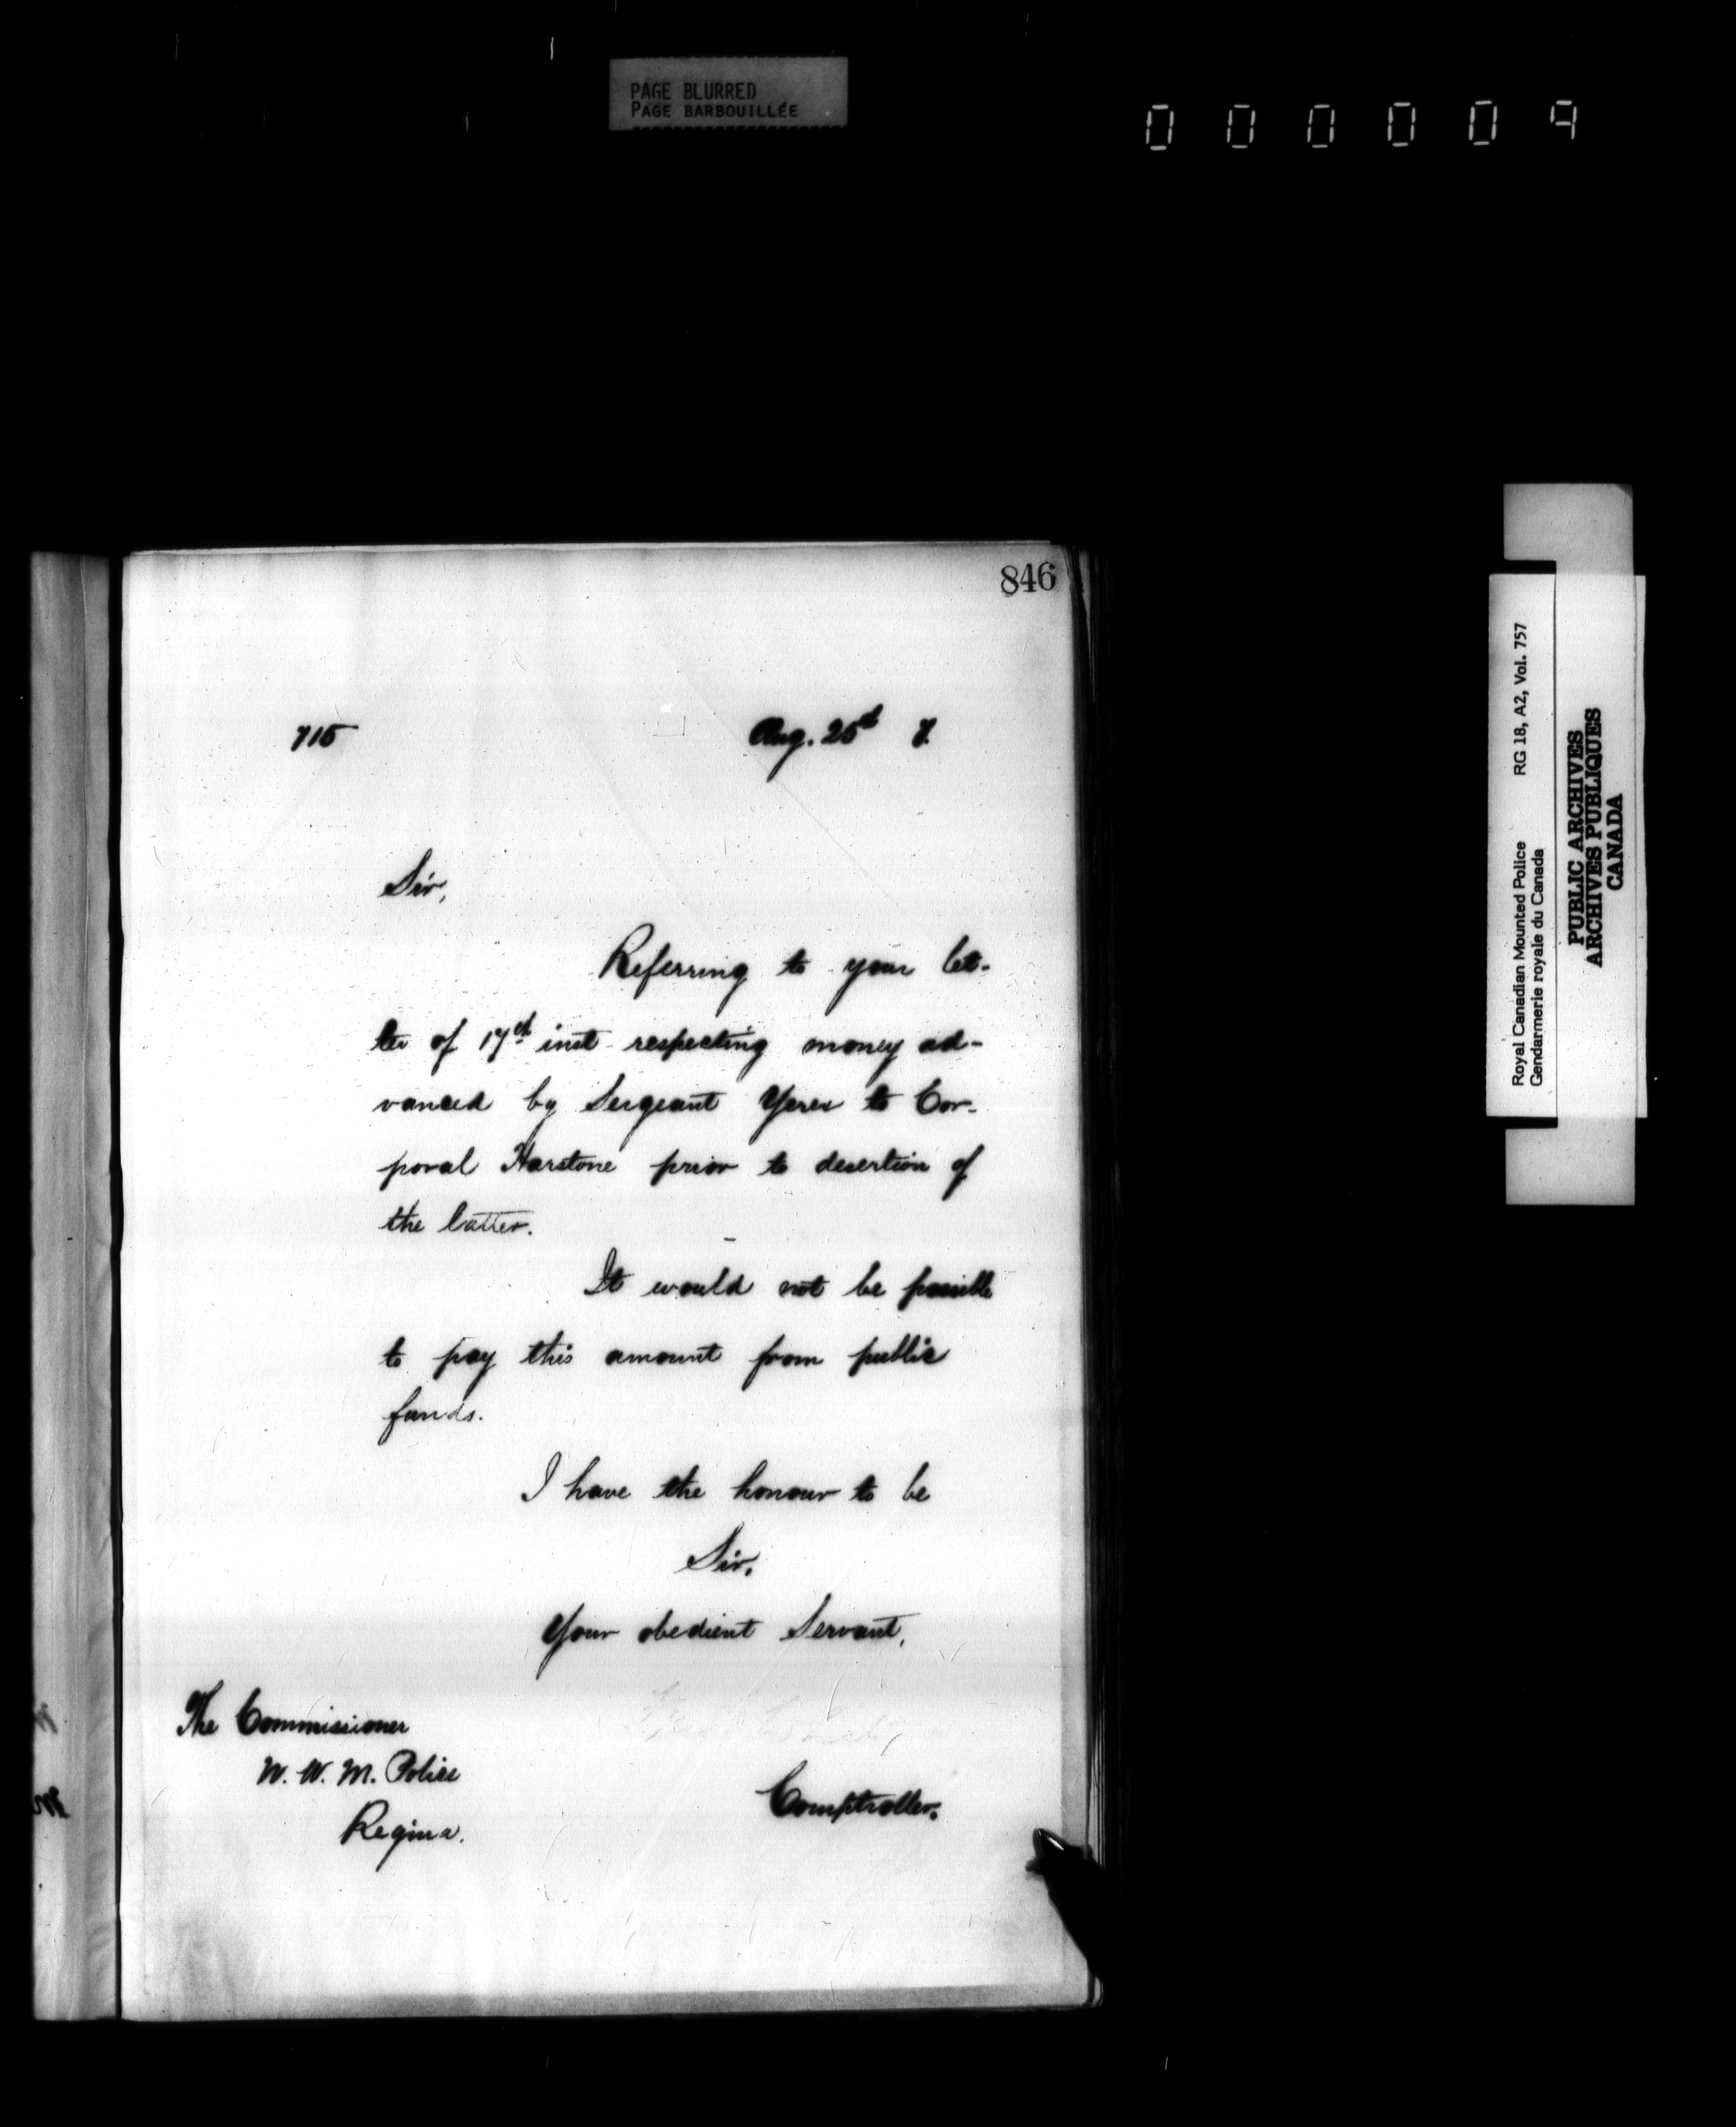 PAGE BLURRED
PAGE BARBOUILLÉE
000009
846
715 Aug. 25th 7.
Sir,
Referring to your let-
ter of 17th inst respecting money ad-
vanced by Sergeant Yeres to Cor-
poral Harstone prior to desertion of
the latter.
It would not be possible
to pay this amount from public
funds.
I have the honour to be
Sir.
Your obedient Servant,
The Commissioner
N. W. M. Police
Regina.
Comptroller.
Royal Canadian Mounted Police RG 18, A2, Vol. 757
Gendarmerie royale du Canada
PUBLIC ARCHIVES
ARCHIVES PUBLIQUES
CANADA